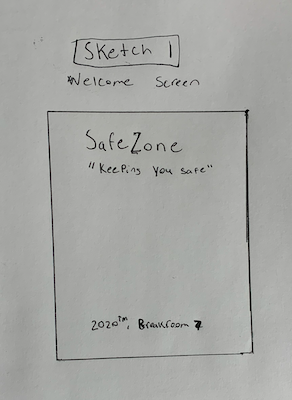 Sketch 1
*Welcome Screen
SafeZone
"Keeping you safe"
2020™, Breakroom 7